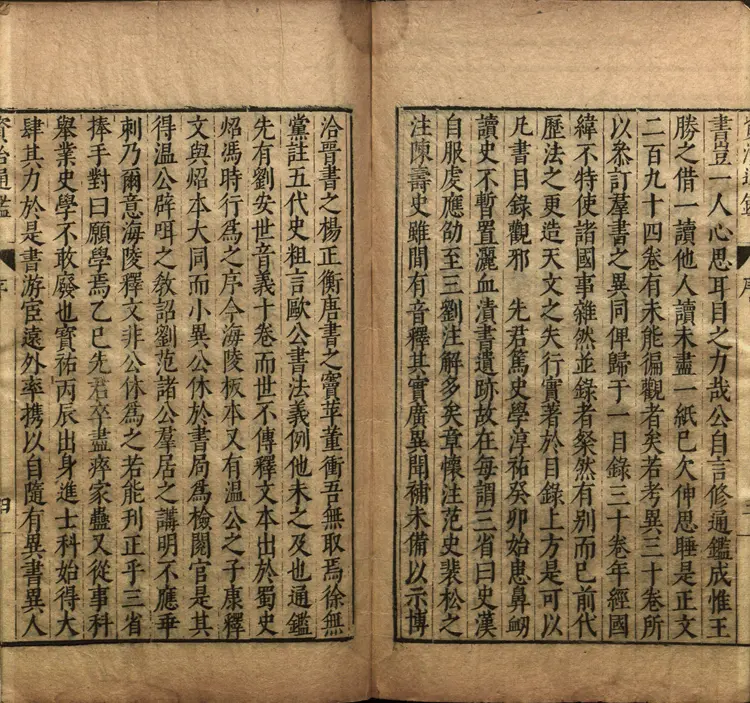 書豈一人心思耳目之力哉公自言修通鑑成惟王
勝之借一讀他人讀未盡一紙已欠伸思睡是正文
二百九十四卷有未能徧觀者矣若考異三十卷所
以叅訂羣書之異同俾歸于一目錄三十卷年經國
緯不特使諸國事雜然並錄者粲然有别而已前代
歷法之更造天文之失行實著於目錄上方是可以
凡書目錄觀邪　先君篤史學淳祐癸卯始患鼻衂
讀史不暫置灑血漬書遺跡故在每謂三省曰史漢
自服虔應劭至三劉注解多矣章懷注范史裴松之
注陳壽史雖間有音釋其實廣異聞補未備以示博
洽晉書之楊正衡唐書之竇苹董衝吾無取焉徐無
黨註五代史粗言歐公書法義例他未之及也通鑑
先有劉安世音義十卷而世不傳釋文本出於蜀史
炤馮時行爲之序今海陵板本又有溫公之子康釋
文與炤本大同而小異公休於書局爲檢閱官是其
得溫公辟咡之敎詔劉范諸公羣居之講明不應乖
剌乃爾意海陵釋文非公休爲之若能刊正乎三省
捧手對曰願學焉乙巳先君卒盡瘁家蠱又從事科
舉業史學不敢廢也寶祐丙辰出身進士科始得大
肆其力於是書游宦遠外率携以自隨有異書異人
資治通鑑 序 四